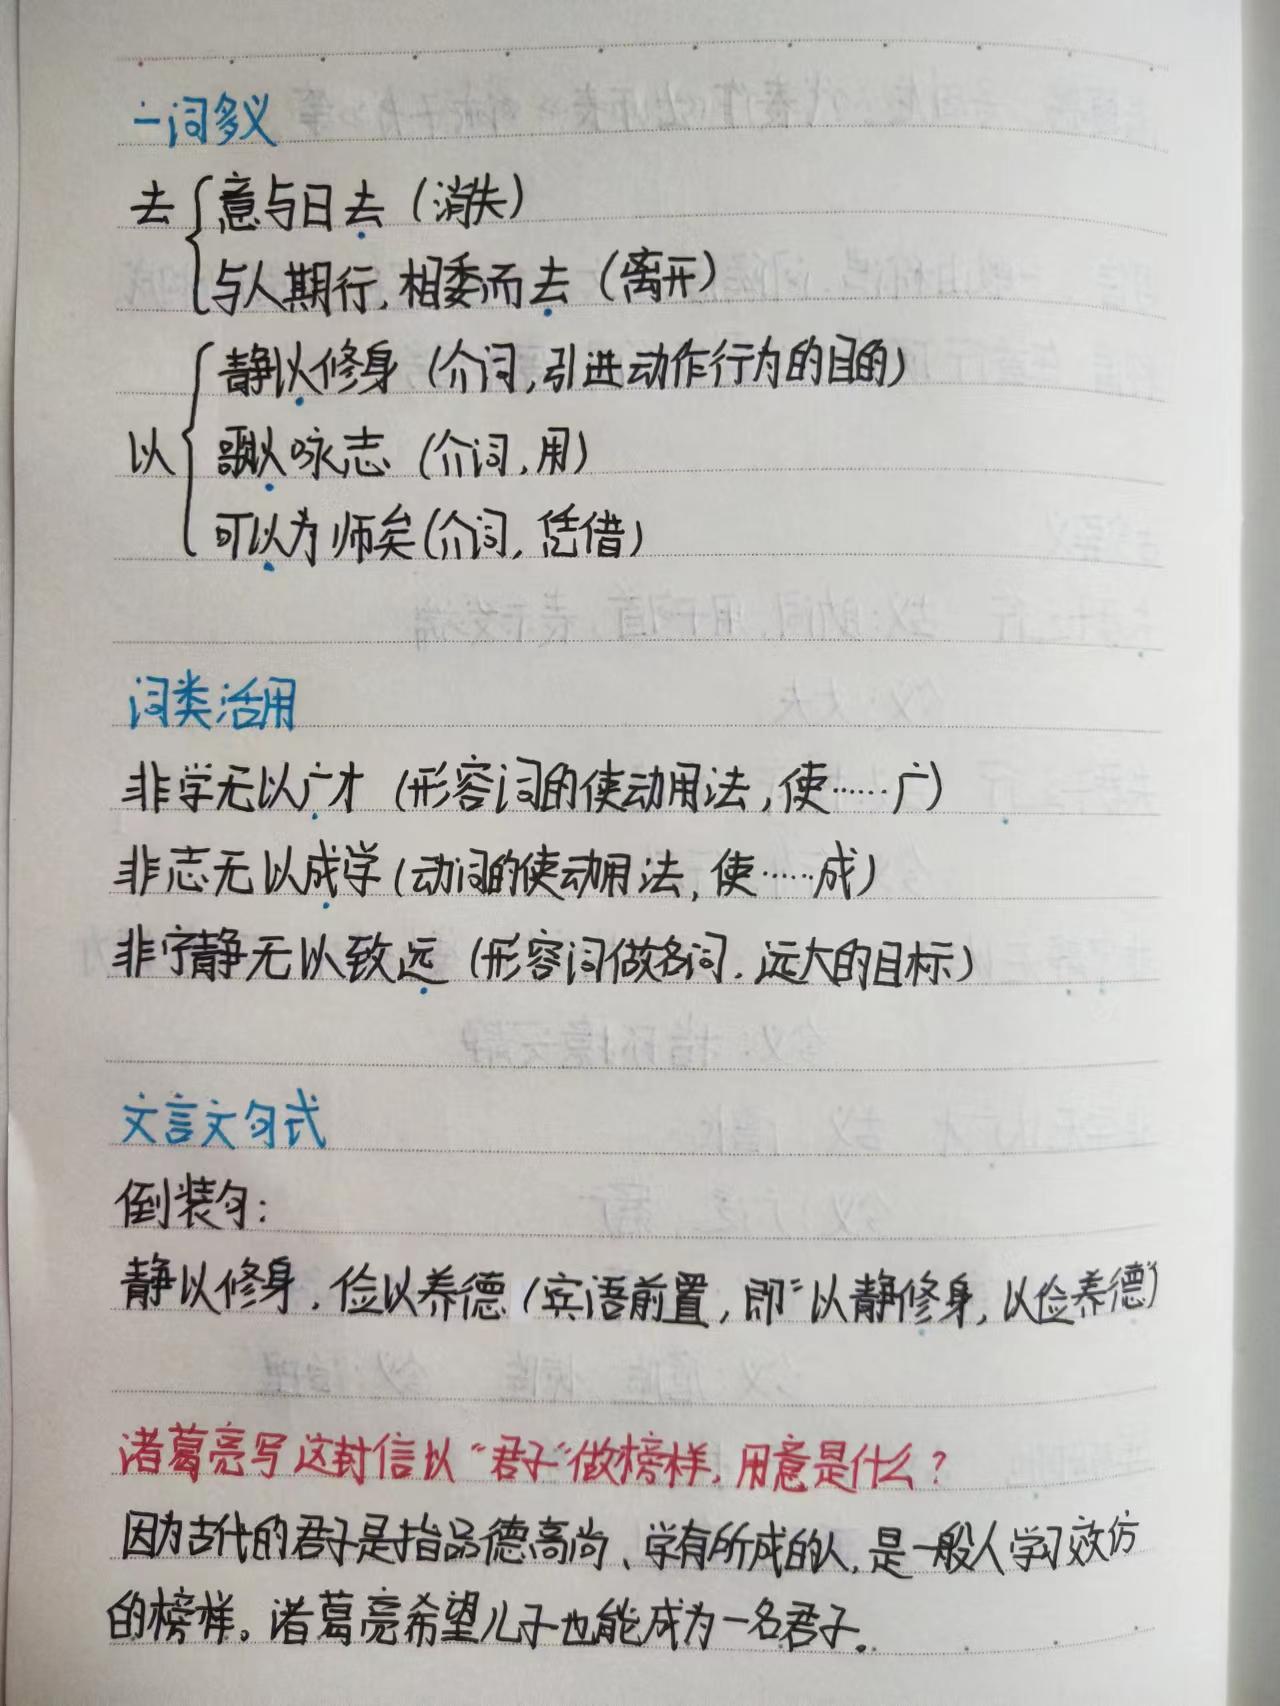 一词多义
去 意与日去（消失）
与人期行，相委而去（离开）
静以修身（介词，引进动作行为的目的）
以 歌以咏志（介词，用）
可以为师矣（介词，凭借）
词类活用
非学无以广才（形容词的使动用法，使……广）
非志无以成学（动词的使动用法，使……成）
非宁静无以致远（形容词做名词．远大的目标）
文言文句式
倒装句：
静以修身，俭以养德（宾语前置，即“以静修身，以俭养德”）
诸葛亮写这封信以“君子”做榜样，用意是什么？
因为古代的君子是指品德高尚、学有所成的人，是一般人学习效仿
的榜样。诸葛亮希望儿子也能成为一名君子。